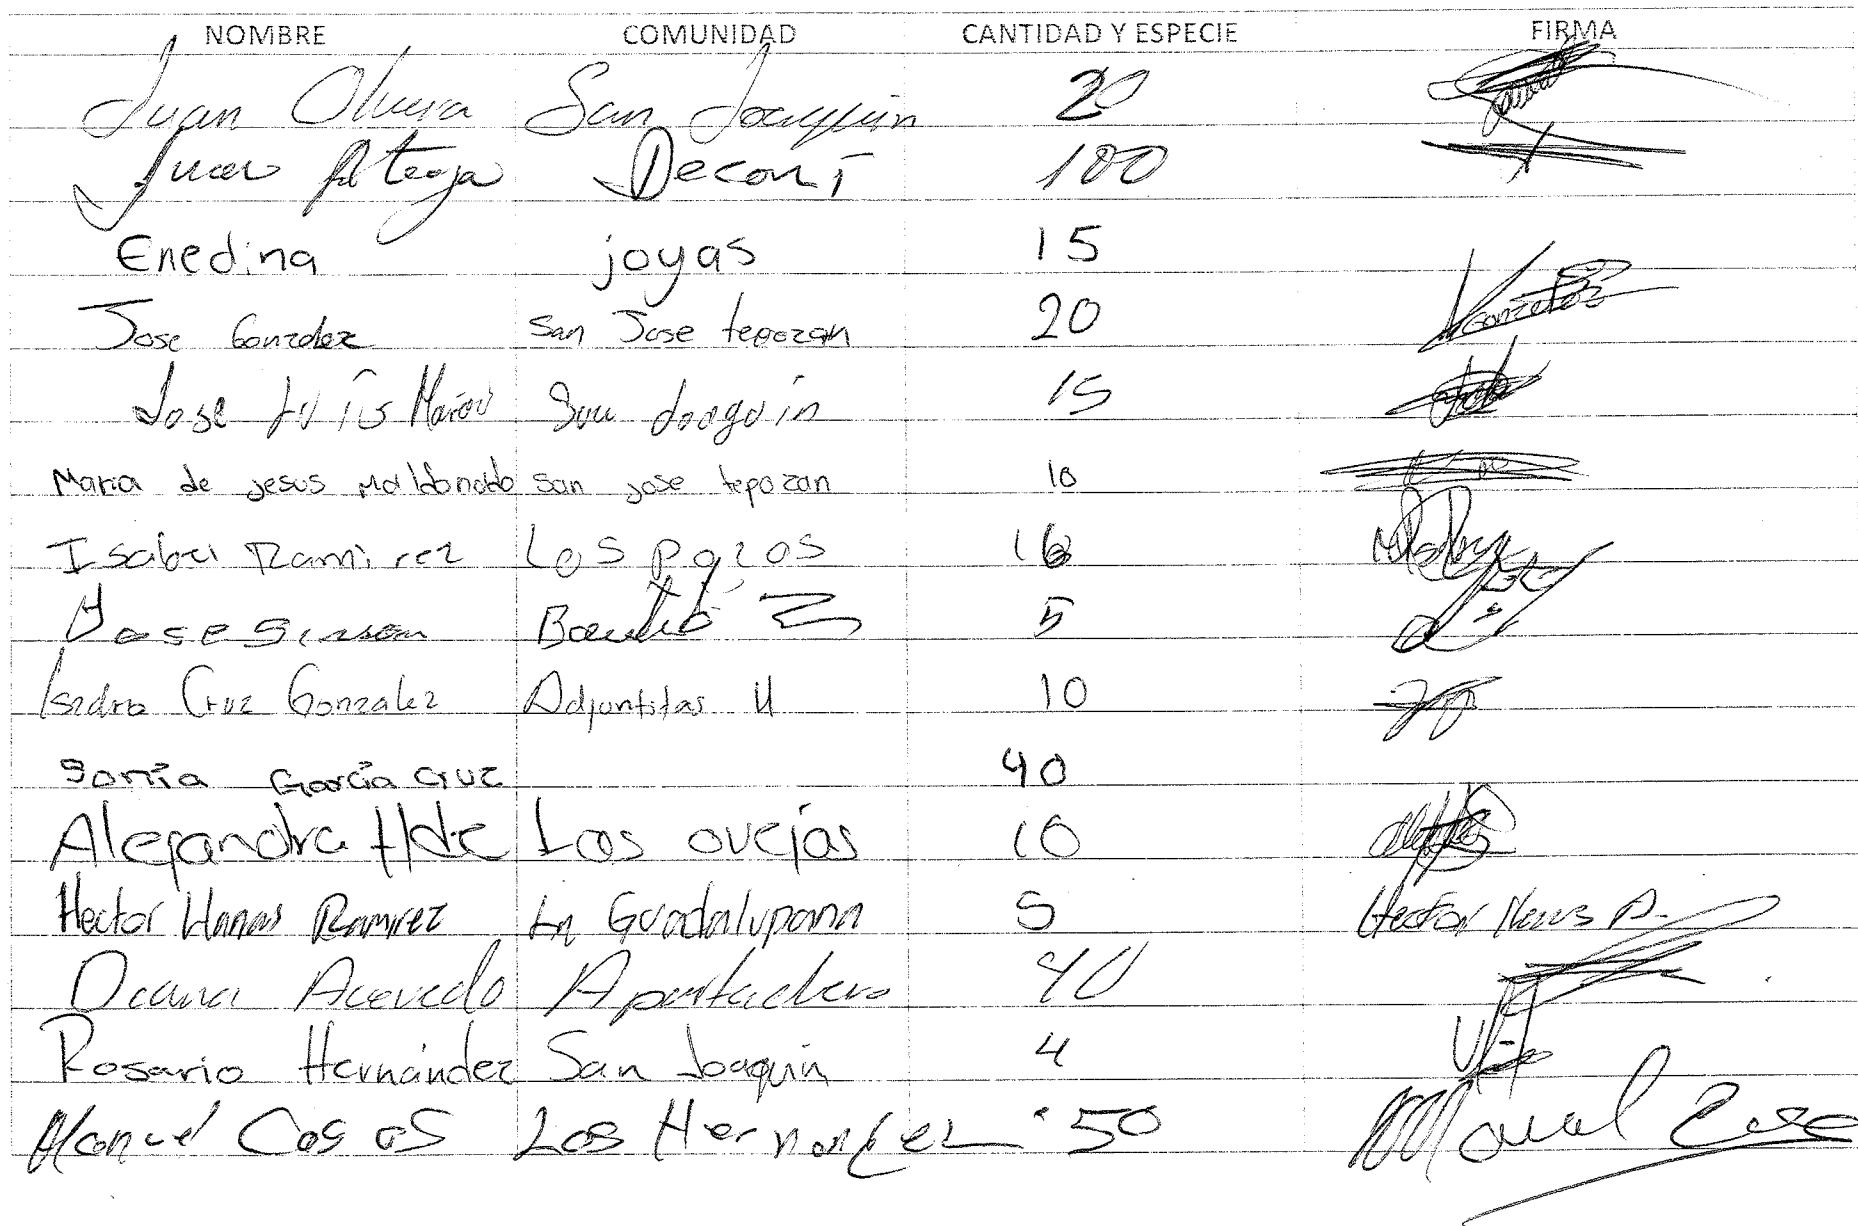 NOMBRE COMUNIDAD CANTIDAD Y ESPECIE FIRMA
Juan Olvera San Joaquin 20
Juan Arteaga Deconí 100
Enedina joyas 15
Jose Gonzalez San Jose tepozan 20 Gonzalez
Jose Luis San Joaquin 15
Maria de Jesus Maldonado San jose tepozan 10
Isabel Ramirez Los pozos 16
Jose 5
Isidro Cruz Gonzalez Adjuntitas 10
Sonia García Cruz 40
Alejandra Hdz Las ovejas 10
Hector Ramirez La Guadalupana 5 Hector
Acevedo Apartadero 40
Rosario Hernández San Joaquin 4
Manuel Casas Los Hernandez 50 Manuel